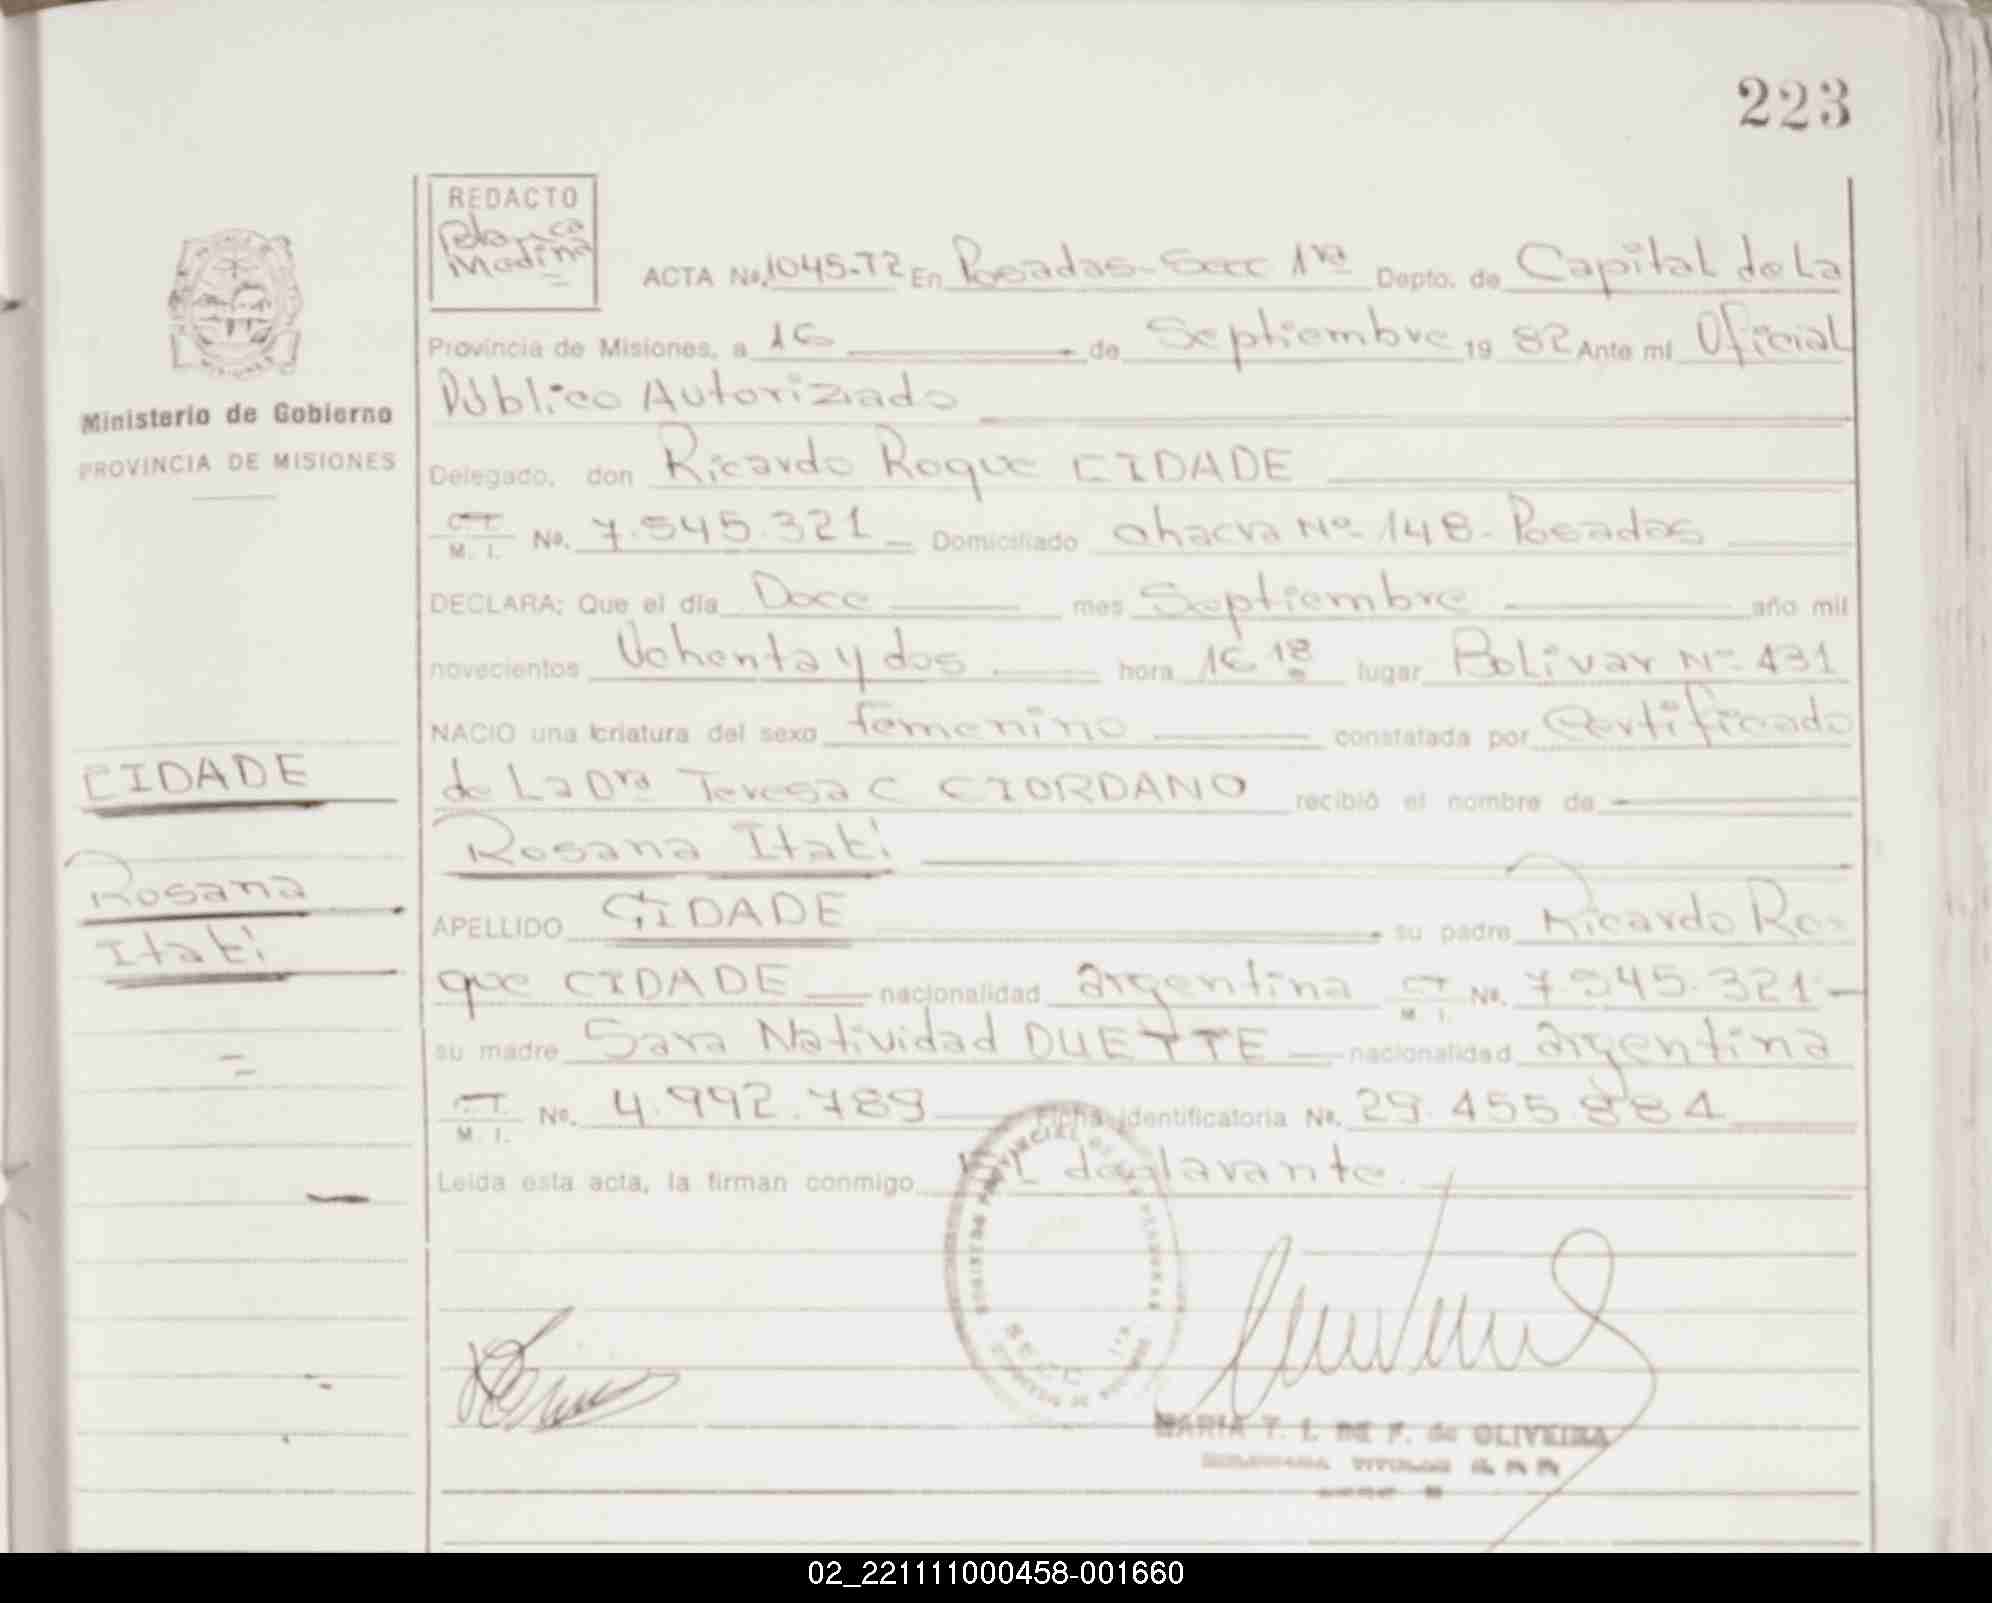 223
REDACTO
Blanca
Medina
ACTA No. 1045-T2 En Posadas-Secc 1ra Depto. de Capital de La
Provincia de Misiones, a 16 de Septiembre 19 82 Ante mí Oficial
Público Autorizado
Ministerio de Gobierno
PROVINCIA DE MISIONES
Delegado, don Ricardo Roque CIDADE
C.I. M. I. No. 7.545.321 Domiciliado chacra Nº 148-Posadas
DECLARA: Que el día Doce mes Septiembre año mil
novecientos Ochenta y dos hora 16 18 lugar Bolivar Nº 431
NACIO una criatura del sexo femenino constatada por Certificado
de La Dra Teresa C GIORDANO recibió el nombre de
Rosana Itatí
APELLIDO CIDADE su padre Ricardo Ro-
que CIDADE nacionalidad argentina C.I. M. I. No. 7.545.321
su madre Sara Natividad DUETTE nacionalidad argentina
C.I. M. I. No. 4.992.789 Ficha identificatoria No. 29.455.884
Leída esta acta, la firman conmigo el declarante.
CIDADE
Rosana
Itatí
REGISTRO PROVINCIAL DE LAS PERSONAS
MARIA T. I. DE F. de OLIVEIRA
02_221111000458-001660